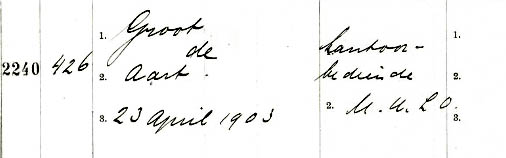 2240 426 1. Groot
de
2. Aart.
3. 23 April 1903
kantoor-
bediende
2. M.U.L.O.
1.
2.
3.